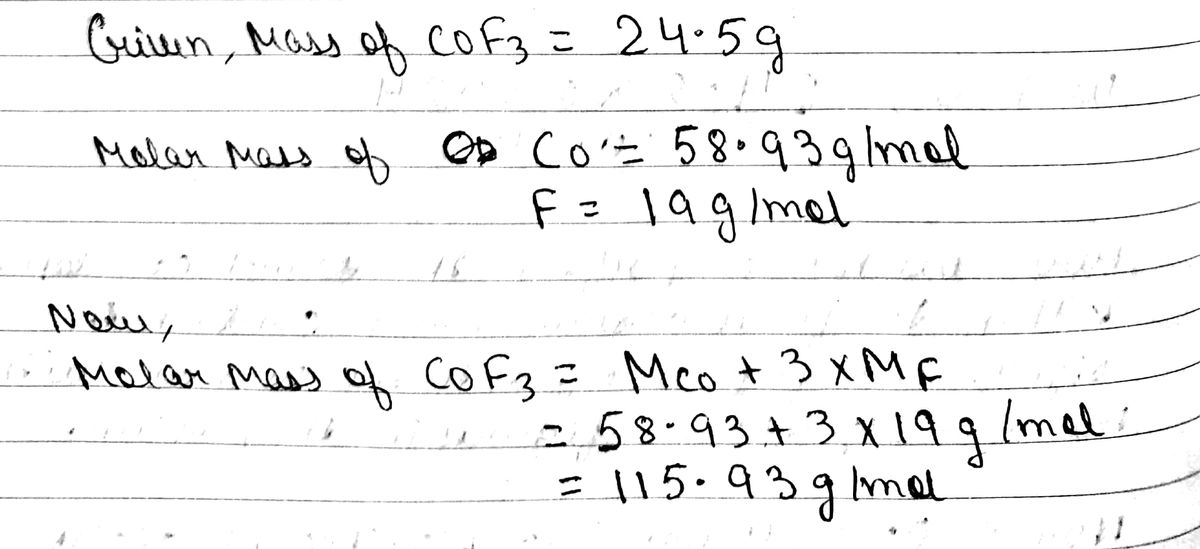 Given, Mass of COF3 = 24.5g
Molar Mass of Co = 58.93g/mol
F = 19 g/mol
Now,
Molar Mass of COF3 = Mco + 3 x MF
= 58.93 + 3 x 19 g/mol
= 115.93 g/mol